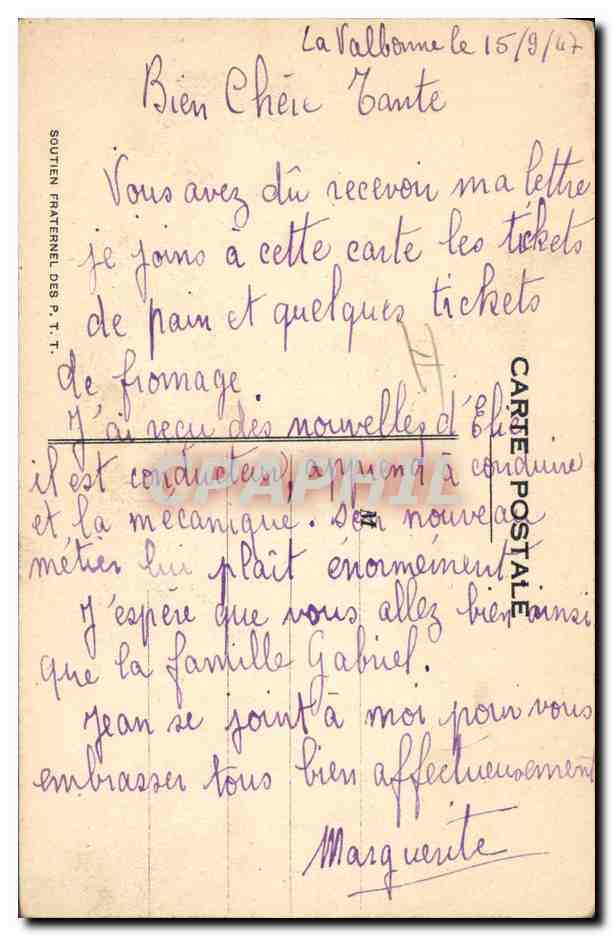 La Valbonne le 15/9/47
Bien Chère Tante
Vous avez dû recevoir ma lettre
je joins à cette carte les tickets
de pain et quelques tickets
de fromage
J'ai reçu des nouvelles d'Elie
il est conducteur, apprend à conduire
et la mécanique. Son nouveau
métier lui plaît énormément.
J'espère que vous allez bien ainsi
que la famille Gabriel.
Jean se joint à moi pour vous
embrasser tous bien affectueusement
Marguerite
SOUTIEN FRATERNEL DES P. T. T.
CARTE POSTALE
M
CPAPHIL